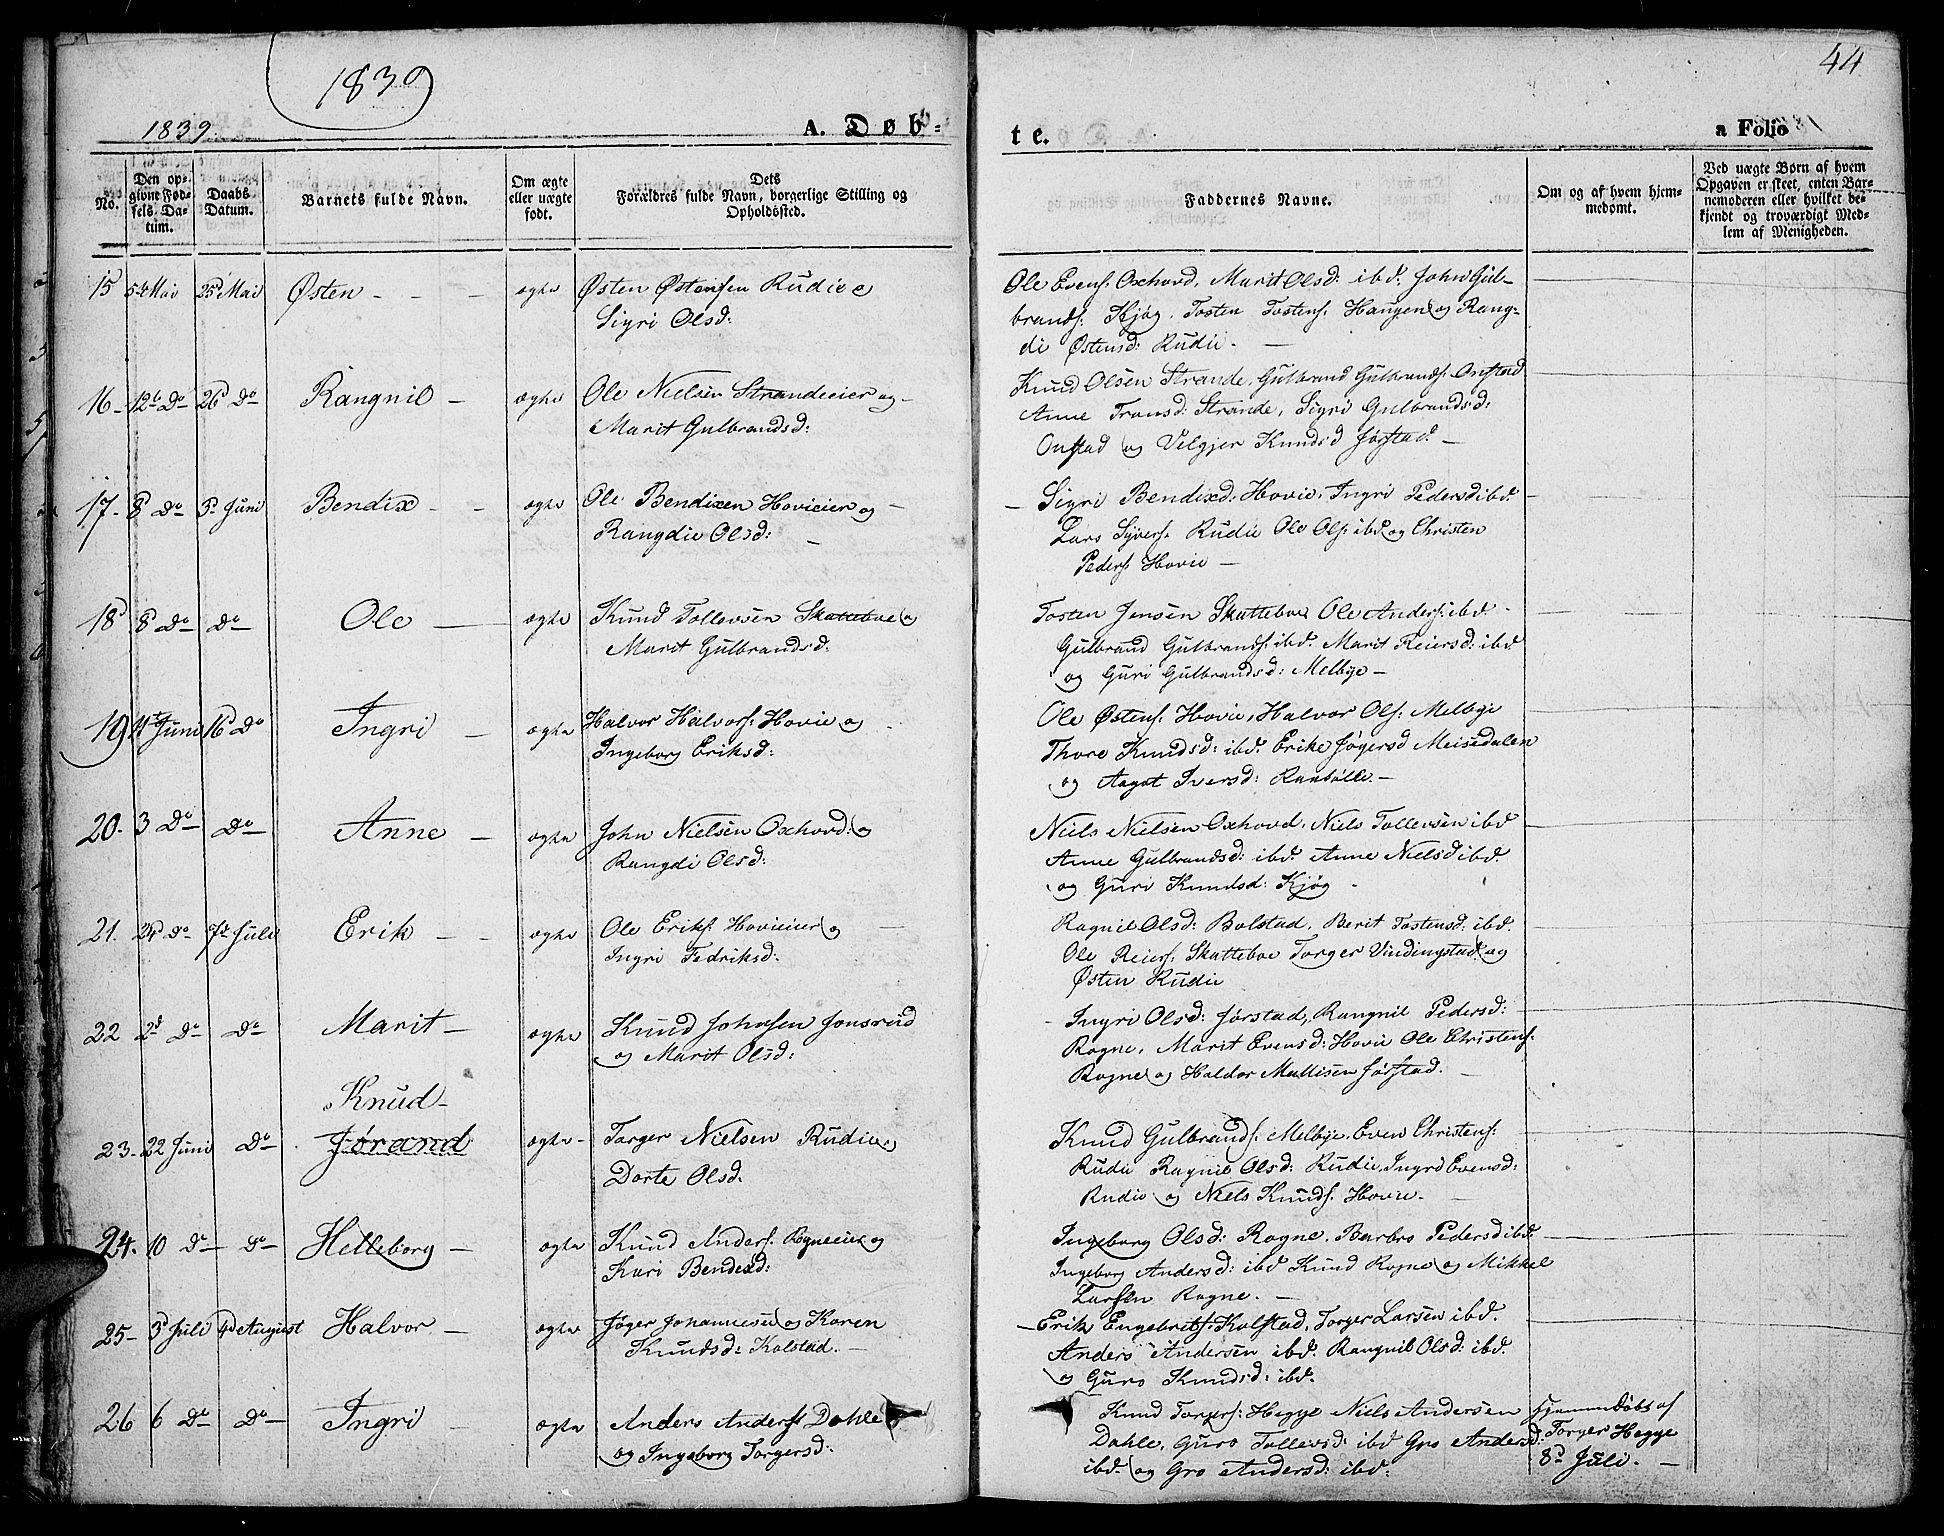 1839
44
1839.
A. Døb-
te.
a Folio
No.
Den op-
givne Fød-
sels. Da-
tum.
Daabs
Datum.
Barnets fulde Navn.
Om ægte
eller uægte
født.
Dets
Forældres fulde Navn, borgerlige Stilling og
Opholdssted.
Faddernes Navne.
Om og af hvem hjem-
medømt.
Ved uægte Børn af hvem
Opgaven er skeet, enten Bar-
nemoderen eller hvilket be-
kjendt og troværdigt Med-
lem af Menigheden.
15 5te Mai 25d Mai Østen - - - ægte Østen Østensen Rudiee
Sigri Olsd:
Ole Evens: Oxhovd, Marit Olsd: ibd: John Gul-
brands: Kjøg, Tosten Tostens: Haugen og Rang-
di Østensd: Rudie. —
16- 12te Do 26d Do Rangnil - ægte Ole Nielsen Strandeeier og -
Marit Gulbrandsd:
Knud Olsen Strande, Gulbrand Gulbrands: Onstad
Anne Transd: Strande, Sigri Gulbrandsd:
Onstad og Velgjer Knudsd Jørstad. —
17- 8 Do 3d Juni Bendix - - ægte Ole Bendixen Hovieier og -
Rangdie Olsd: —
- Sigri Bendixd: Hovie, Ingri Pedersd ibd.
Lars Syvers: Rudie Ole Ols: ibd og Christen
Peders: Hovie —
18 8d Do Do Ole — ægte Knud Tollevsen Skattebøe og
Marit Gulbrandsd:
Tosten Jensen Skattebøe Ole Anders: ibd.
Gulbrand Gulbrands: ibd. Marit Reiersd: ibd
og Guri Gulbrandsd: Melbye —
19 4t Juni 16d Do Ingri - ægte Halvor Halvors: Hovie og
Ingeborg Eriksd:
Ole Østens: Hovie, Halvor Ols: Melbye
Thore Knudsd: ibd. Erike Jøgersd Meisedalen
og Aagot Iversd: Ransølle. —
20. 3 Do Do Anne - ægte John Nielsen Oxhovd: og
Rangdi Olsd:
Niels Nielsen Oxhovd, Niels Tollevsen ibd
Anne Gulbrandsd: ibd. Anne Nielsd ibd.
og Guri Knudsd: Kjøg -
21. 24 Do 7t Juli Erik - - ægte Ole Eriks: Hovieier og -
Ingri Fedriksd:
Ragnil Olsd: Bolstad, Berit Tostensd: ibd.
Ole Reiers: Skattebøe Torger Vindingstad og
Østen Rudie
22 2d Do Do Marit - ægte Knud Johnsen Jonsrud
og Marit Olsd:
- Ingri Olsd: Jørstad, Rangnil Pedersd:
Rogne, Marit Evensd: Hovie Ole Christens:
Rogne og Haldor Mattisen Jørstad. —
Knud -
23- 22 Juni Do Jørand ægte - Torger Nielsen Rudie og
Dorte Olsd.
Knud Gulbrands: Melbye, Even Christens:
Rudie Ragnil Olsd: Rudie, Ingri Evensd:
Rudie og Niels Knuds: Hovie. —
24. 10 Do Do Helleborg - ægte Knud Anders: Rogneeier og
Kari Bendexd:
Ingeborg Olsd: Rogne, Barbro Pedersd ibd.
Ingeborg Andersd: ibd Knud Rogne og Mikkel
Larsen Rogne. —
25- 3d Juli 4d August Halvor - ægte Jøger Johannesen og Karen
Knudsd: Kolstad. —
- Erik Engebrits: Kolstad, Torger Larsen ibd.
Anders Andersen ibd. Rangnil Olsd: ibd.
og Guro Knudsd: ibd.
26 6 Do Do Ingri - ægte Anders Anders: Dahle
og Ingeborg Torgersd:
Knud Torgers: Hegge Niels Andersen
Dahle, Guro Tollevsd: ibd Gro Andersd:
ibd. og Gro Andersd: ibd:
Hjemmedøbt af
Torger Hegge
8d Juli. —